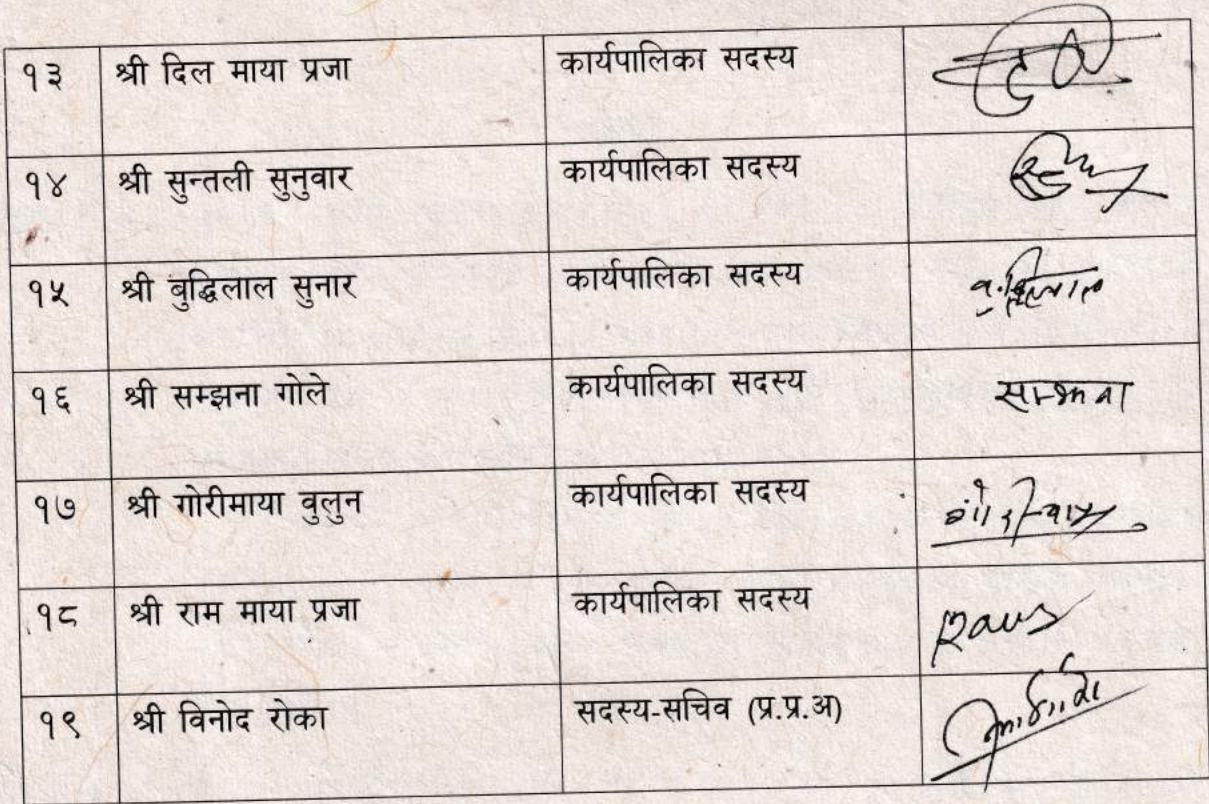 १३ श्री दिल माया प्रजा कार्यपालिका सदस्य
१४ श्री सुन्तली सुनुवार कार्यपालिका सदस्य
१५ श्री बुद्धिलाल सुनार कार्यपालिका सदस्य बुद्धिलाल
१६ श्री सम्झना गोले कार्यपालिका सदस्य
१७ श्री गोरीमाया वुलुन कार्यपालिका सदस्य
१८ श्री राम माया प्रजा कार्यपालिका सदस्य
१९ श्री विनोद रोका सदस्य-सचिव (प्र.प्र.अ)